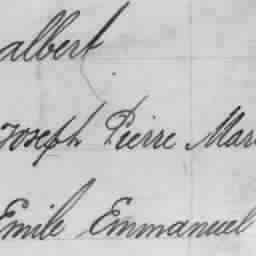 albert
Joseph Pierre Mar
Emile Emmanuel